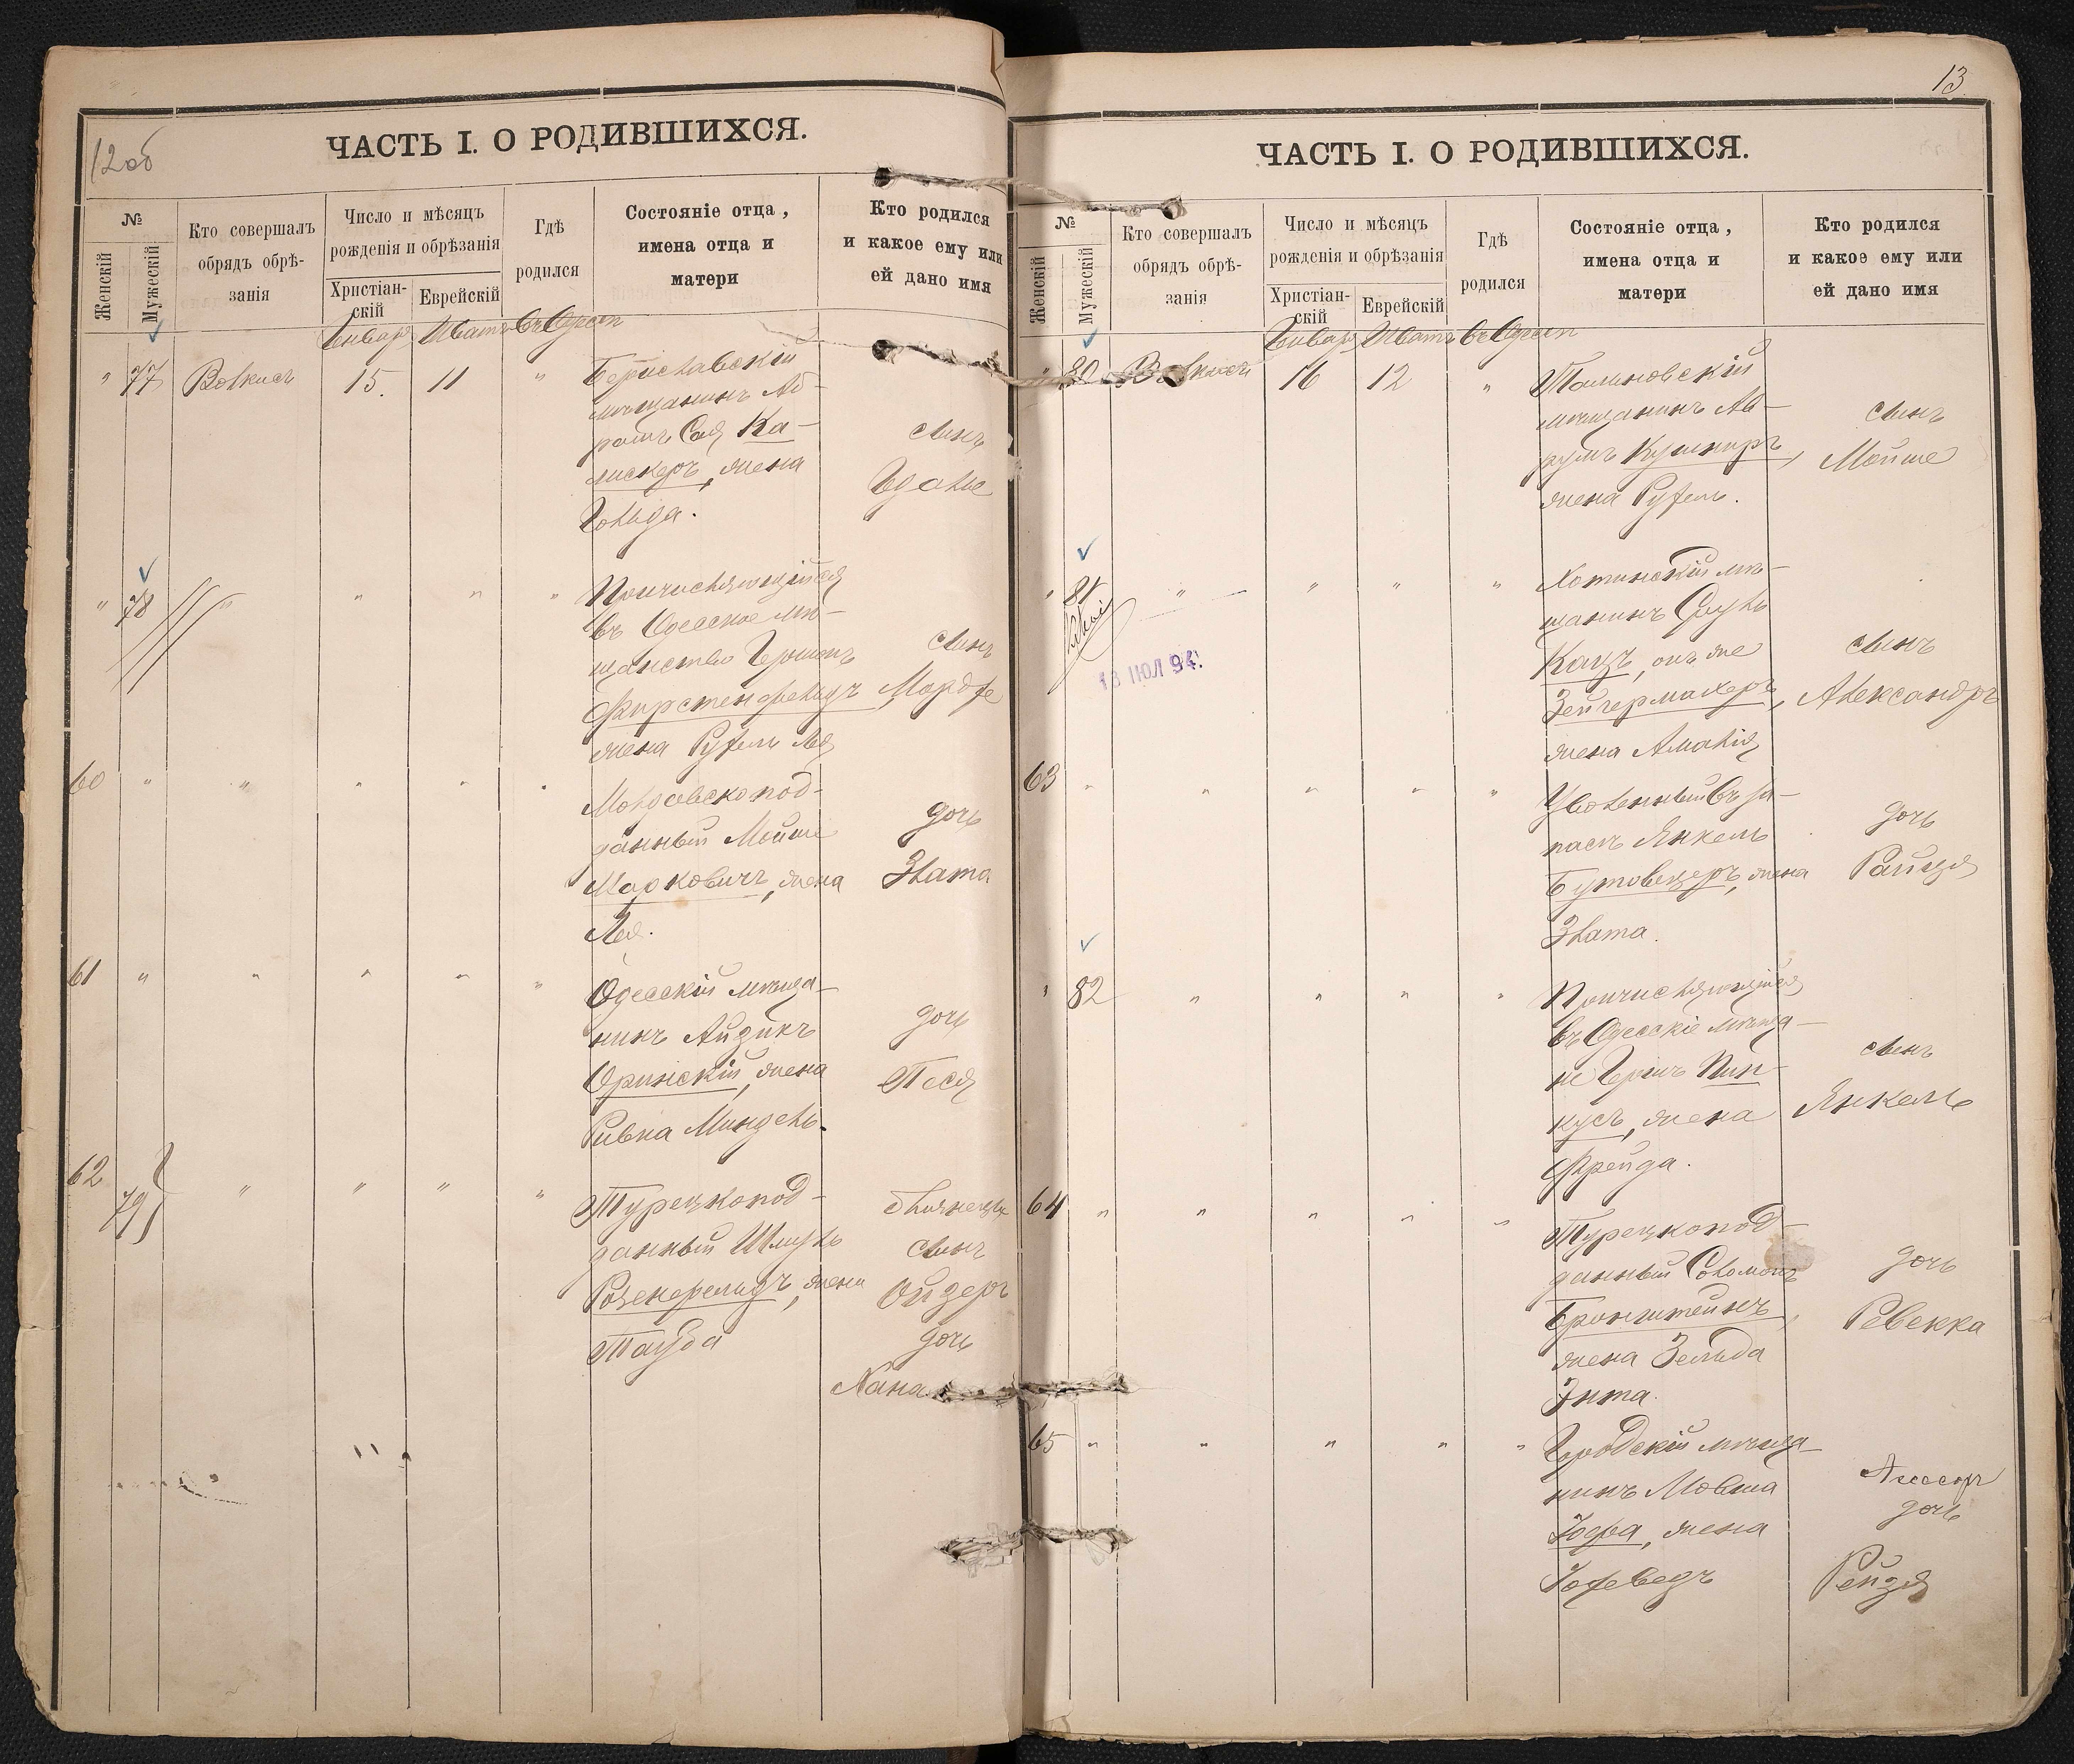 12об
ЧАСТЬ I. О РОДИВШИХСЯ.
№
Женскій
Мужескій
Кто совершалъ
обрядъ обрѣ-
занія
Число и мѣсяцъ
рожденія и обрѣзанія
Христіан-
скій
Еврейскій
Гдѣ
родился
Состояніе отца,
имена отца и
матери
Кто родился
и какое ему или
ей дано имя
Январ Шватъ въ Одессѣ
" 77 Волкисъ 15. 11 "
Бериславскій
мѣщанинъ Аб-
рамъ Ка-
лискеръ, жена
Гольда.
сынъ
" 78 " " " "
Причисляющійся
въ Одесское мѣ-
щанство Гершонъ
Фирстенфельдъ,
жена Рухель Лея
сынъ
Мордхе
60 " " " " "
Молдовскопод-
данный Мойше
Марковичъ, жена
Лея.
дочь
Злата
61 " " " " "
Одесскій мѣща-
нинъ Айзикъ
Оринскій, жена
Ривка Миндель.
дочь
Песя
62 79 " " " "
Турецкопод-
данный Шмуль
жена
Тауба
близнецы
сынъ
Ойзеръ
дочь
Хана
13
ЧАСТЬ I. О РОДИВШИХСЯ.
№
Женскій
Мужескій
Кто совершалъ
обрядъ обрѣ-
занія
Число и мѣсяцъ
рожденія и обрѣзанія
Христіан-
скій
Еврейскій
Гдѣ
родился
Состояніе отца,
имена отца и
матери
Кто родился
и какое ему или
ей дано имя
Январ Шватъ въ Одессѣ
" 80 Волкисъ 16 12 "
Тальновскій
мѣщанинъ Ав-
румъ Кушниръ,
жена Рухель.
сынъ
Мойше
" 81 " " " "
18 ІЮЛ 94.
Хотинскій мѣ-
щанинъ Сруль
Кацъ, онъ же
Зейгермахеръ,
жена Амалія
сынъ
Александръ
63 " " " " "
Уволенный въ за-
пасъ Янкель
жена
Злата.
дочь
Райця
" 82 " " " "
Причисляющійся
въ Одесскіе мѣща-
не Гершъ Пин-
кусъ, жена
Фрейда.
сынъ
Янкель
64 " " " " "
Турецкопод-
данный Соломонъ
Бронштейнъ,
жена Зельда
Энта.
дочь
Ревекка
65 " " " " "
мѣща-
нинъ Мовша
Іоффа, жена
Іохеведъ
дочь
Рейзя